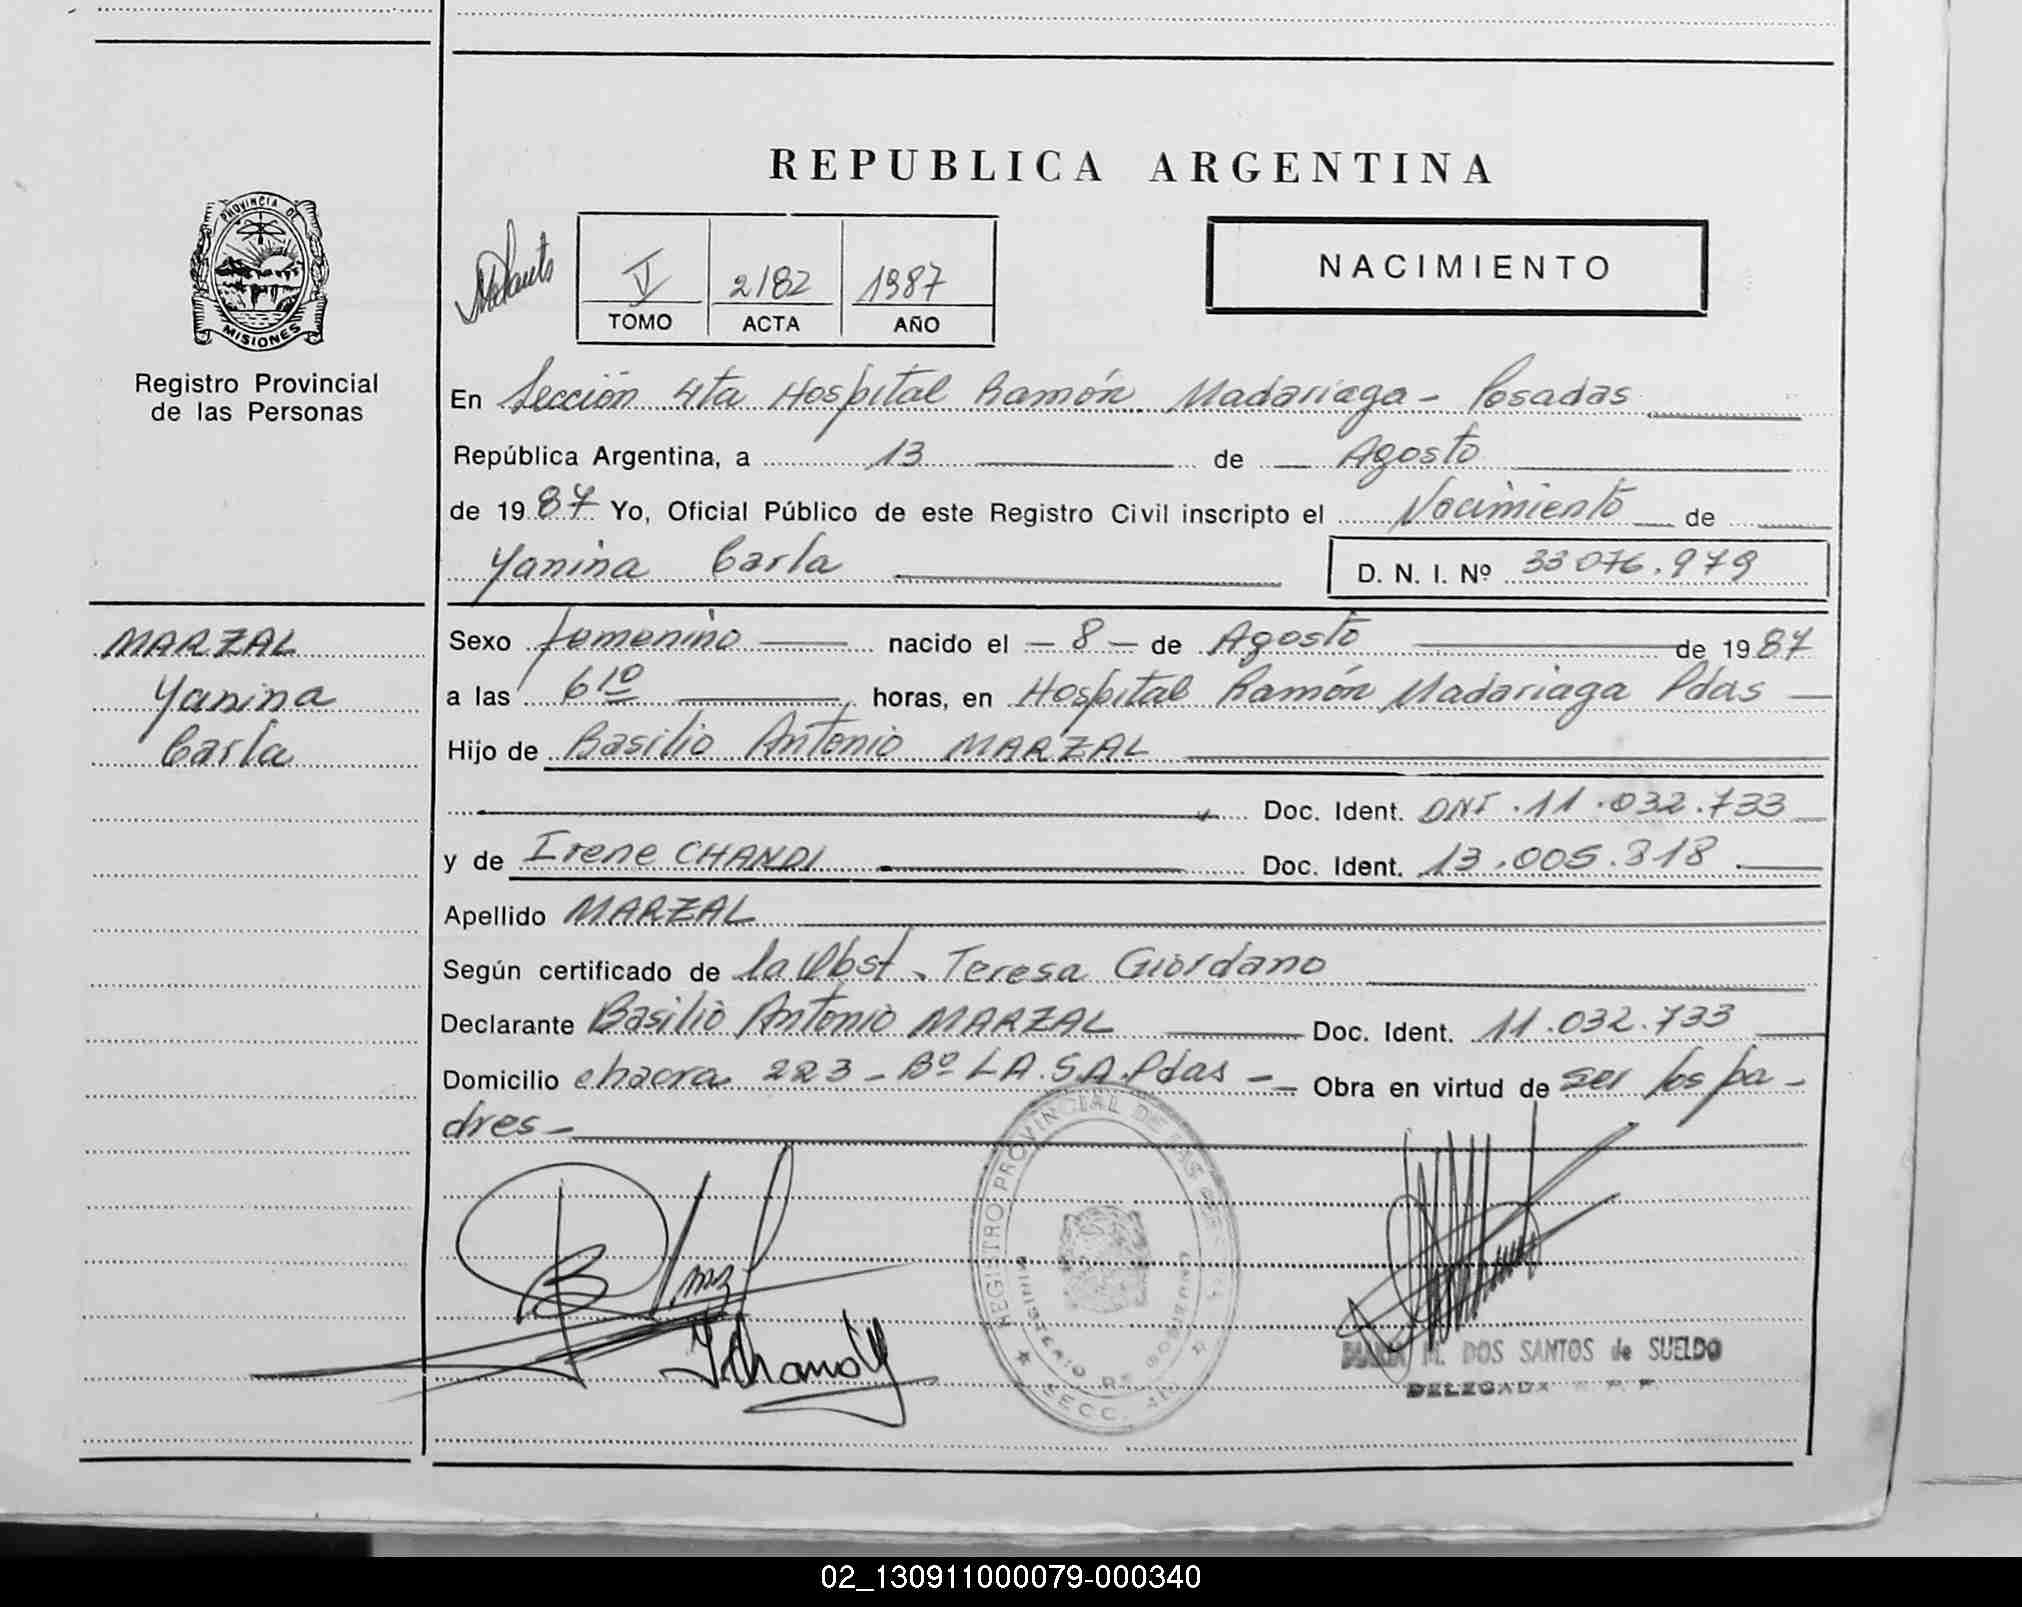 REPUBLICA ARGENTINA
PROVINCIA DE
MISIONES
Registro Provincial
de las Personas
V 2182 1987
TOMO ACTA AÑO
NACIMIENTO
En Sección 4ta Hospital Ramón Madariaga - Posadas
República Argentina, a 13 de Agosto
de 1987 Yo, Oficial Público de este Registro Civil inscripto el Nacimiento de
Yanina Carla D. N. I. Nº 33076.979
MARZAL
Yanina
Carla
Sexo femenino nacido el - 8 - de Agosto de 1987
a las 6 10 horas, en Hospital Ramón Madariaga Pdas
Hijo de Basilio Antonio MARZAL
Doc. Ident. DNI . 11 . 032 . 733
y de Irene CHANDI Doc. Ident. 13.005.818
Apellido MARZAL
Según certificado de la Obst. Teresa Giordano
Declarante Basilio Antonio MARZAL Doc. Ident. 11.032.733
Domicilio chacra 223 - Bº L.A.S.A. Pdas - Obra en virtud de ser los pa -
dres -
REGISTRO PROVINCIAL DE LAS PERSONAS
MINISTERIO DE GOBIERNO
SECC. 4ta
M. DOS SANTOS de SUELDO
DELEGADA R. P. P.
02_130911000079-000340